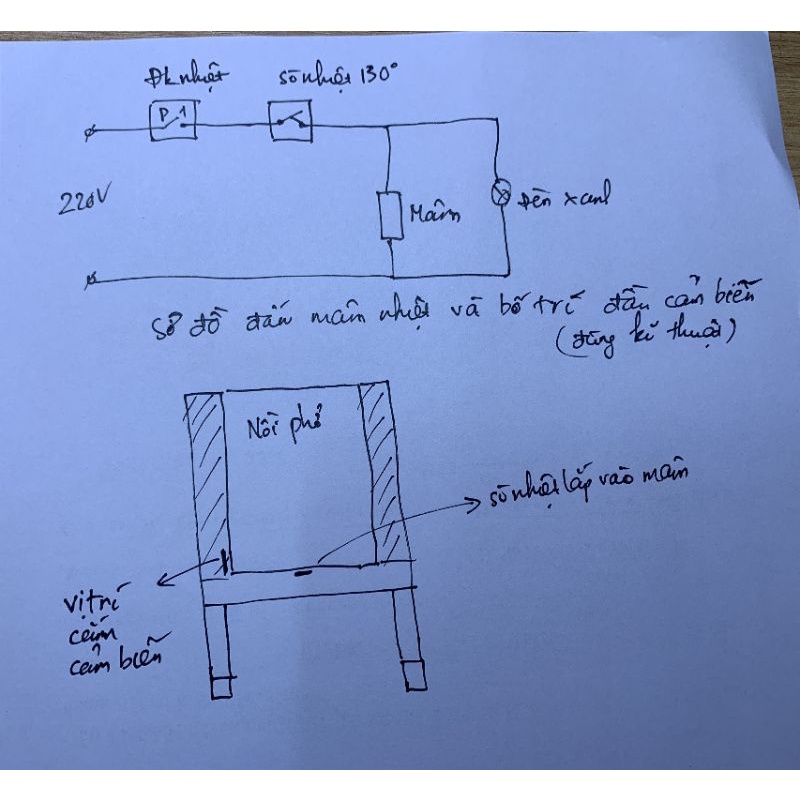 ĐK nhiệt
sò nhiệt 130°
P 1
220V
Mâm
Đèn xanh
Sơ đồ đấu mâm nhiệt và bố trí đầu cảm biến
(đúng kĩ thuật)
Nồi phở
sò nhiệt lắp vào mâm
vị trí
cắm
cảm biến